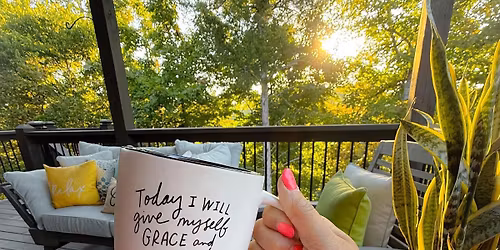 relax
Today I WILL
give myself
GRACE and